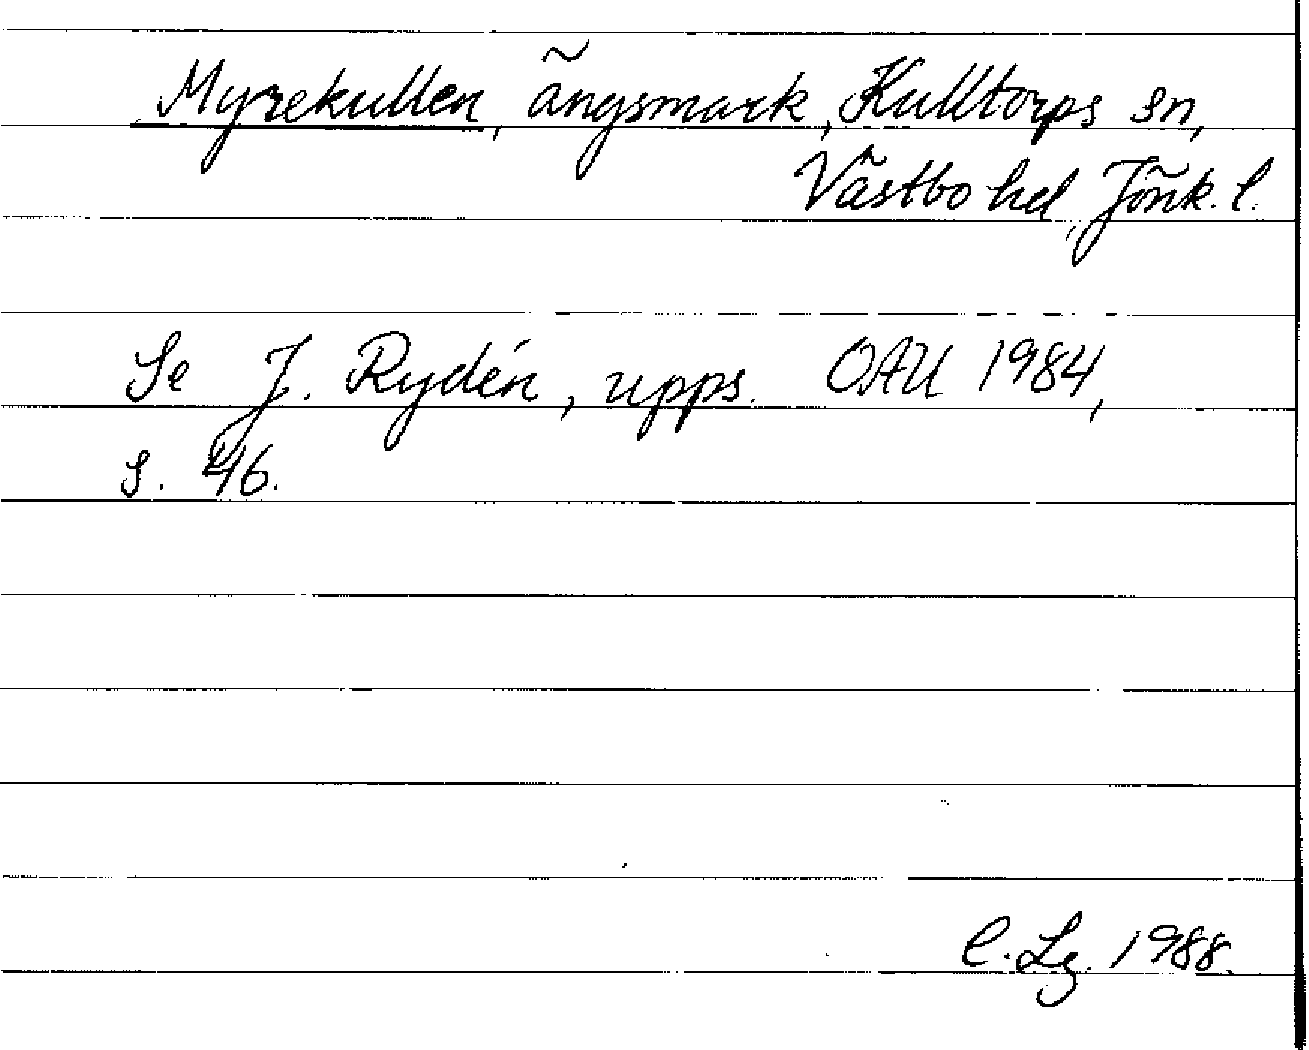 Myrekullen, ängsmark, Kulltorps sn,
Västbo hd, Jönk. l.
Se J. Rydén, upps. OAU 1984,
s. 46.
C. Lg. 1988.